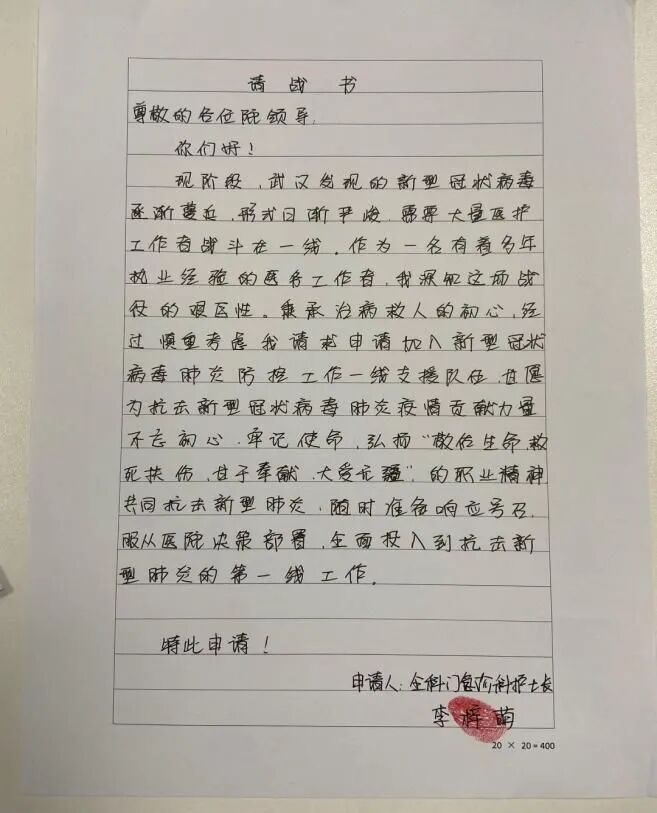 请战书
尊敬的各位院领导,
你们好!
现阶段,武汉发现的新型冠状病毒
逐渐蔓延,形式日渐严峻,需要大量医护
工作者战斗在一线。作为一名有着多年
执业经验的医务工作者,我深知这场战
役的艰巨性。秉承治病救人的初心,经
过慎重考虑我请求申请加入新型冠状
病毒肺炎防控工作一线支援队伍,甘愿
为抗击新型冠状病毒肺炎疫情贡献力量
不忘初心,牢记使命,弘扬“敬佑生命救
死扶伤,甘于奉献,大爱无疆”,的职业精神
共同抗击新型肺炎,随时准备响应号召,
服从医院决策部署,全面投入到抗击新
型肺炎的第一线工作。
特此申请!
申请人:全科门急诊科护士长
李梓萌
20 × 20 = 400